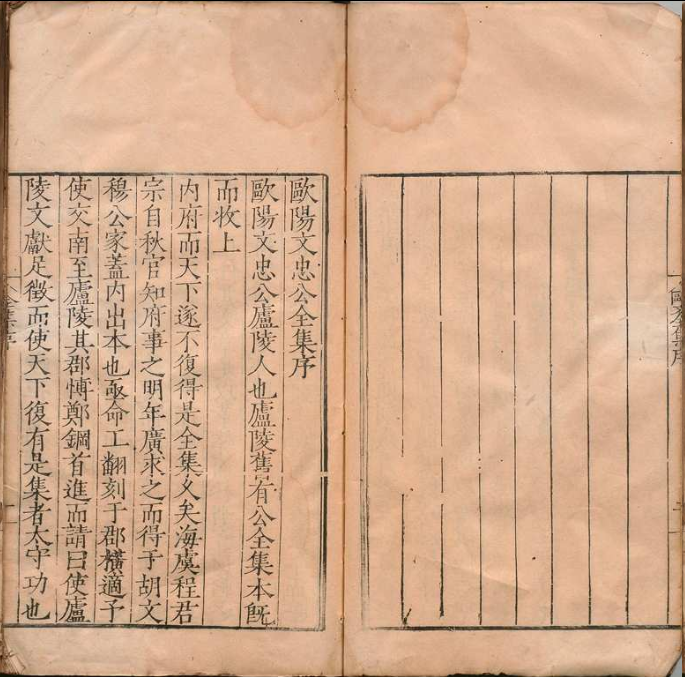 歐陽文忠公全集序
歐陽文忠公廬陵人也廬陵舊有公全集本旣
而牧上
內府而天下遂不復得是全集乂矣海虞程君
宗自秋官知府事之明年廣求之而得于胡文
穆公家蓋內出本也亟命工翻刻于郡橫適予
使交南至廬陵其郡愽鄭鋼首進而請曰使廬
陵文獻足徵而使天下復有是集者太守功也